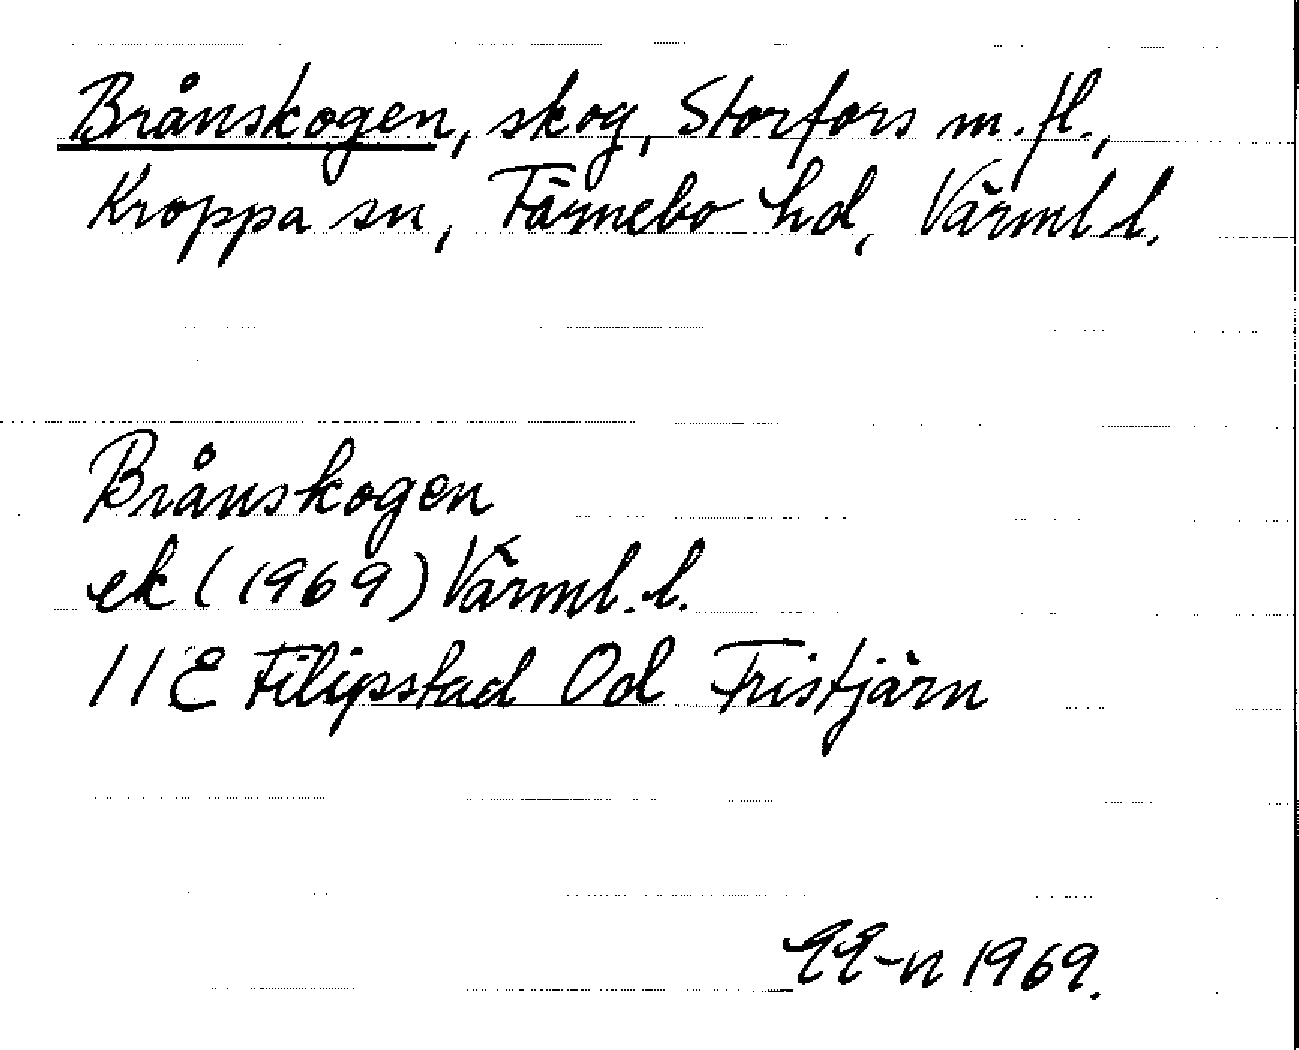 Brånskogen, skog, Storfors m.fl.,
Kroppa sn, Färnebo hd, Värml l.
Brånskogen
ek (1969) Värml. l.
11E Filipstad Od Fristjärn
1969.